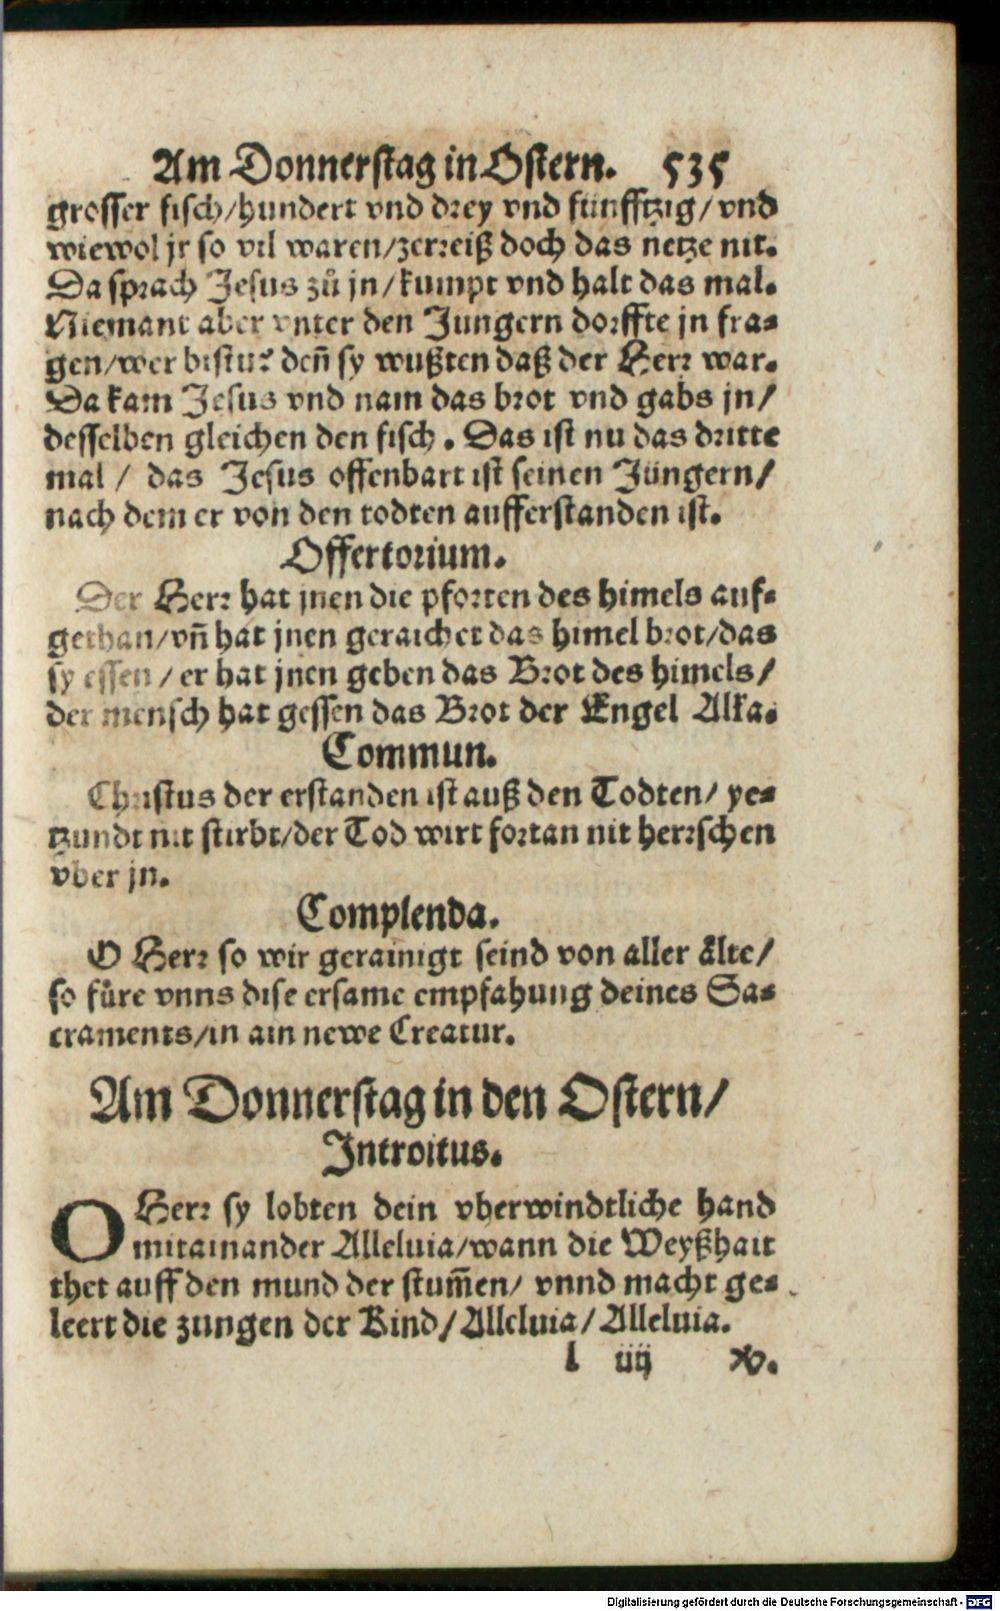 Am Donnerstag in Ostern. 535
grosser fisch/hundert vnd drey vnd fünfftzig/vnd
wiewol jr so vil waren/zerreiß doch das netze nit.
Da sprach Jesus zů jn/kumpt vnd halt das mal.
Niemant aber vnter den Jungern dorffte jn fra-
gen/wer bistu? deñ sy wußten daß der Herr war.
Da kam Jesus vnd nam das brot vnd gabs jn/
desselben gleichen den fisch. Das ist nu das dritte
mal / das Jesus offenbart ist seinen Jüngern/
nach dem er von den todten aufferstanden ist.
Offertorium.
Der Herr hat jnen die pforten des himels auf-
gethan/vñ hat jnen geraichet das himel brot/das
sy essen / er hat jnen geben das Brot des himels/
der mensch hat gessen das Brot der Engel Alka.
Commun.
Christus der erstanden ist auß den Todten/ ye-
tzundt nit stirbt/der Tod wirt fortan nit herrschen
vber jn.
Complenda.
O Herr so wir gerainigt seind von aller ålte/
so fůre vnns dise ersame empfahung deines Sa-
craments/in ain newe Creatur.
Am Donnerstag in den Ostern/
Introitus.
O Herr sy lobten dein vberwindtliche hand
mitainander Alleluia/wann die Weyßhait
thet auff den mund der stum̃en/ vnnd macht ge-
leert die zungen der Kind/Alleluia/Alleluia.
l iiij V.
Digitalisierung gefördert durch die Deutsche Forschungsgemeinschaft - DFG